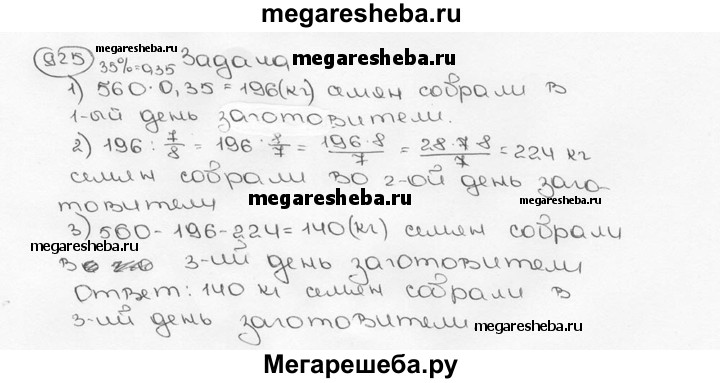 megaresheba.ru
925 megaresheba.ru Задача megaresheba.ru
35%=0,35
1) 560·0,35=196(кг) семян собрали в
1-ый день заготовители.
2) 196 : 7/8 = 196 · 8/7 = 196·8/7 = 28·7·8/7 = 224 кг
семян собрали во 2-ой день заго-
товители megaresheba.ru
3) 560-196-224=140(кг) семян собрали
megaresheba.ru
в 3-ий день заготовители
Ответ: 140 кг семян собрали в
3-ий день заготовители megaresheba.ru
Мегарешеба.ру